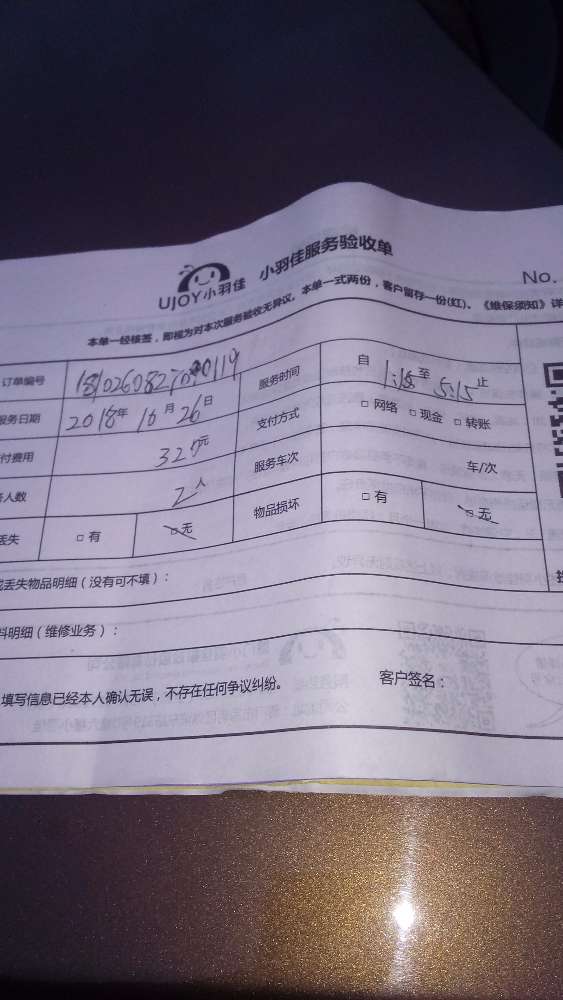 UJOY小羽佳 小羽佳服务验收单
No.
本单一经核签，即视为对本次服务验收无异议。本单一式两份，客户留存一份(红)。《维保须知》详
订单编号 服务时间 自 1:15 至 5:15 止
服务日期 2018年 10月 26日 支付方式 □ 网络 □ 现金 □ 转账
付费用 320元 服务车次 车/次
人数 2人 物品损坏 □ 有 □ 无
丢失 □ 有 □ 无
丢失物品明细（没有可不填）：
料明细（维修业务）：
填写信息已经本人确认无误，不存在任何争议纠纷。 客户签名：